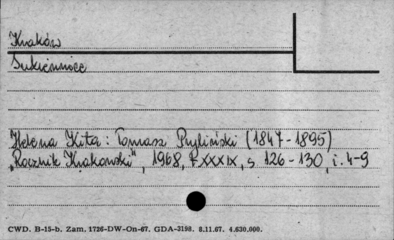 Kraków
Sukiennice
Helena Kita: Tomasz Pryliński (1847-1895)
„Rocznik Krakowski", 1968, t. XXXIX, s. 126-130, i. 4-9
CWD. B-15-b. Zam. 1726-DW-On-67. GDA-3198. 8.11.67. 4.630.000.